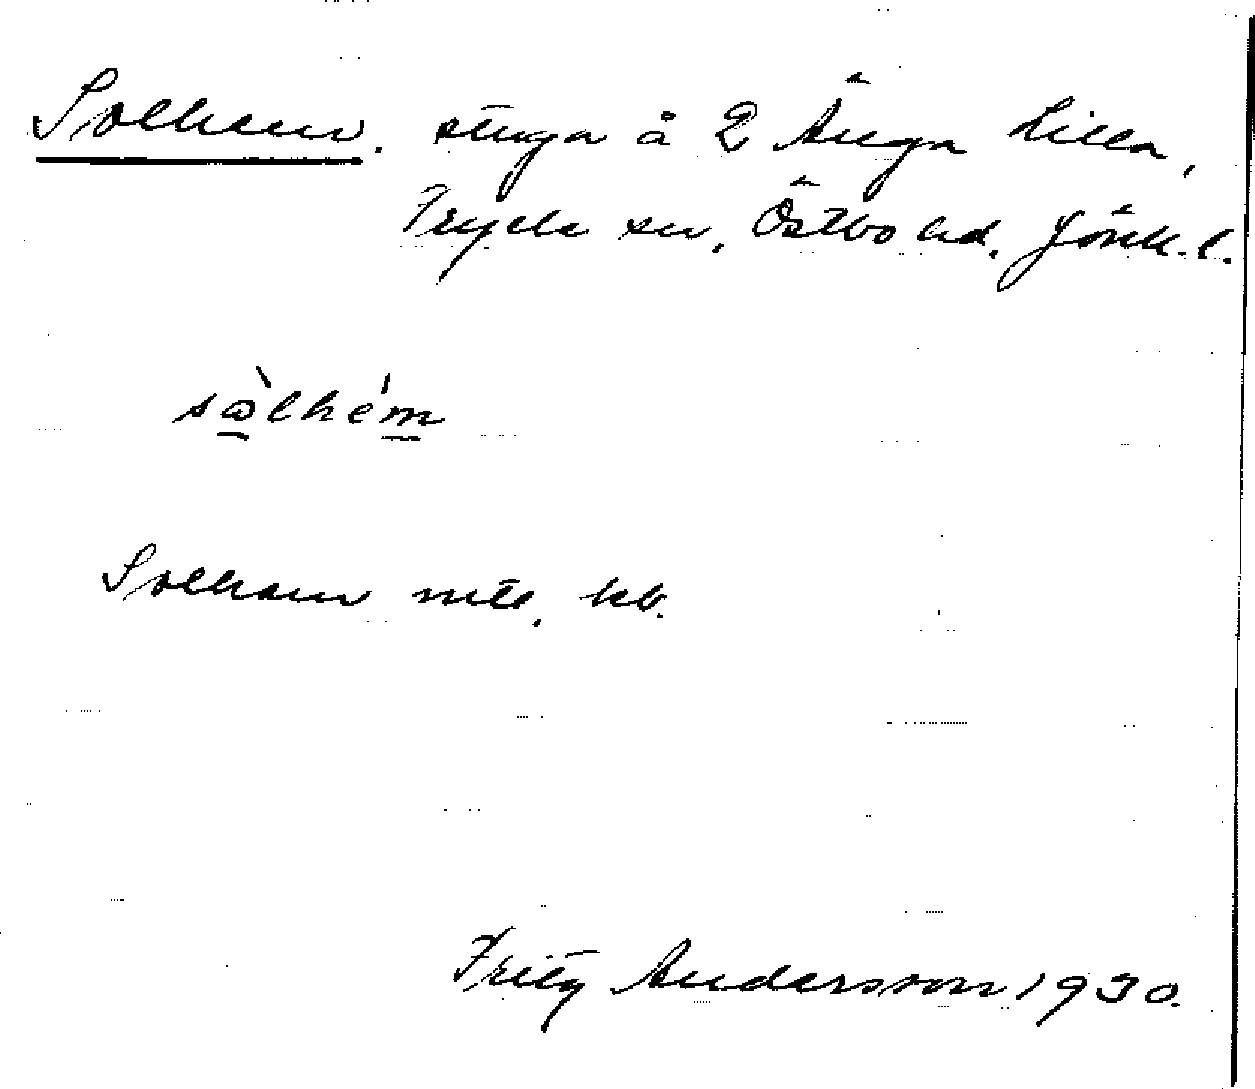 Solhem. stuga å 2 Änga Lilla,
Fryele sn, Östbo hd. Jönk. l.
sòlhém
Solhem mtl, kb.
Fritz Andersson 1930.